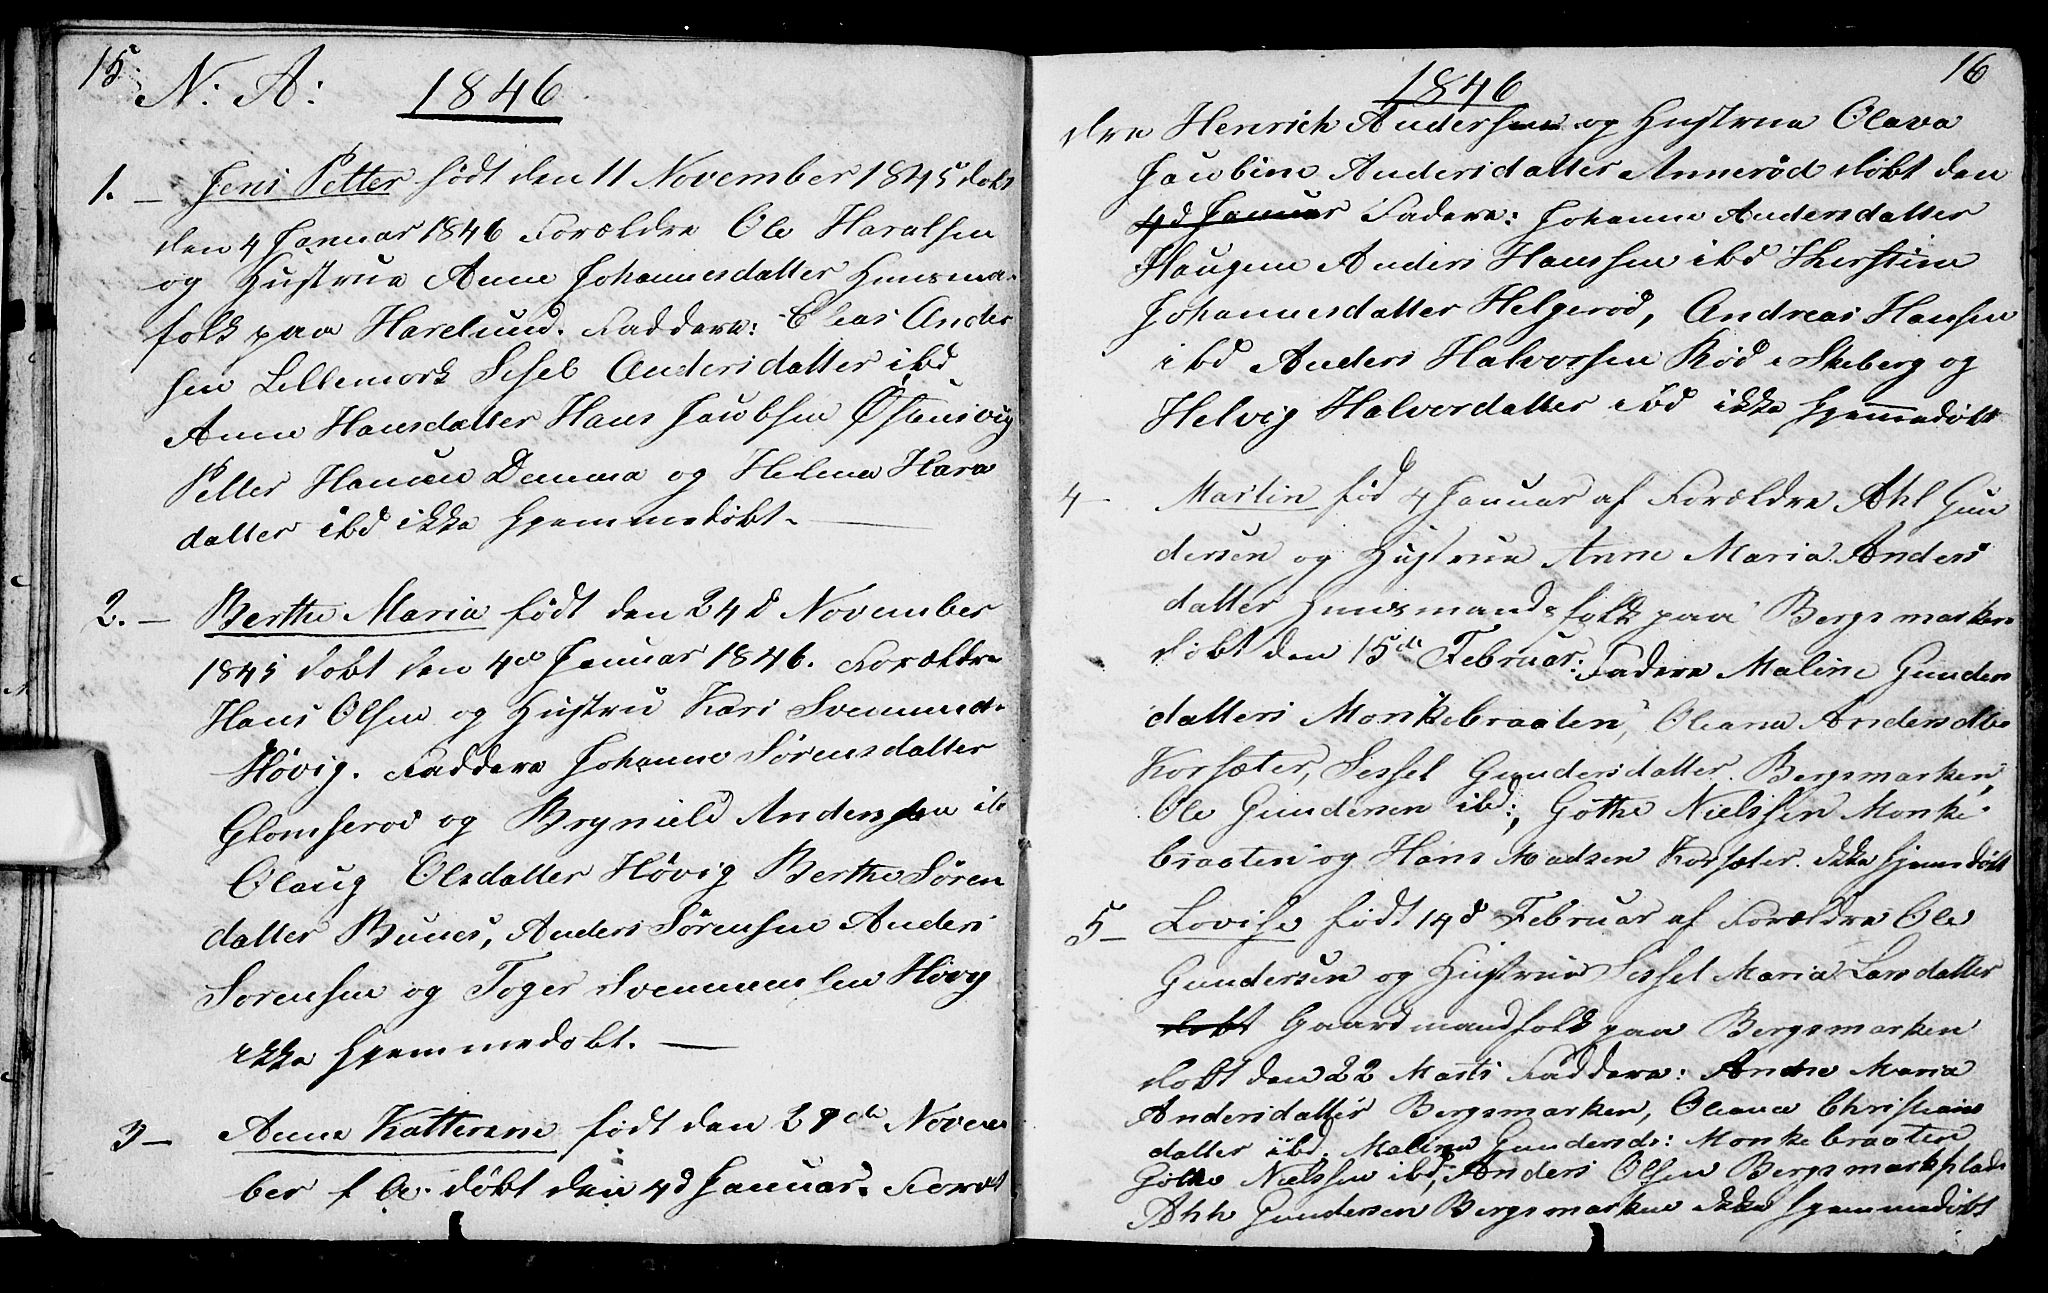 15
N: A:
1846
1. – Jens Petter født den 11 November 1845 døbt
den 4 Januar 1846 Forældre Ole Haralsen
og Hustrue Anne Johannesdatter Huusma-
folk paa Harelund. Faddere: Elias Ander
sen Lillemork Sisel Andersdatter ibd
Anne Hansdatter Hans Jacobsen Østensvig
Petter Hansen Damma og Helena Hara
datter ibd ikke hjemmedøbt. –
2. – Berthe Maria født den 24d November
1845 døbt den 4de Januar 1846. Forældre
Hans Olsen og Hustru Kari Svennund-
Høvig. Faddere Johanne Sørensdatter
Glomserød og Bryniild Andersen ib
Olaug Olsdatter Høvig Berthe Søren
datter Buues, Anders Sørensen Anders
Sørensen og Toger Svennunsen Høvig
ikke hjemmedøbt. –
3 – Anne Katterine født den 29de Novem
ber f. A. døbt den 4d Januar. Foræl
16
1846
dre Henrich Andersen og Hustrue Olava
Jacobine Andersdatter Annerød døbt den
4d Januar Fadere: Johanne Andersdatter
Haugene Anders Hanssen ibd Kherstine
Johannesdatter Helgerød, Andreas Hansen
ibd Anders Halvorsen Rød i Skeberg og
Helvig Halvorsdatter ibd ikke hjemmedøbt
4 – Martin fød 4 Januar af Forældre Ahl Gun
dersen og Hustrue Anne Maria Anders
datter Huusmandsfolk paa Bergsmarken
døbt den 15de Februar: Fadere Maline Gunders
datters Monkebraaten, Oleana Andersdtr
Korsæter, Sessel Gundersdatter Bergsmarken,
Ole Gundersen ibd:, Gøthe Nielssen Monke-
braaten og Hans Madsen Korsæter. Ikke hjemdøbt
5 – Lovise født 14d Februar af Forældre Ole
Gundersen og Hustrue Sessel Maria Larsdatter
døbt Gaardmandfolk paa Bergsmarken
døbt den 22 Marts Faddere: Andre Maria
Andersdatter Bergsmarken, Oleana Christians
datter ibd. Maline Gundersd: Monkebraaten,
Gøthe Nielssen ibd, Anders Olsen Bergsmarkplads
Ahl Gundersen Bergsmarken Ikke hjemmedøbt